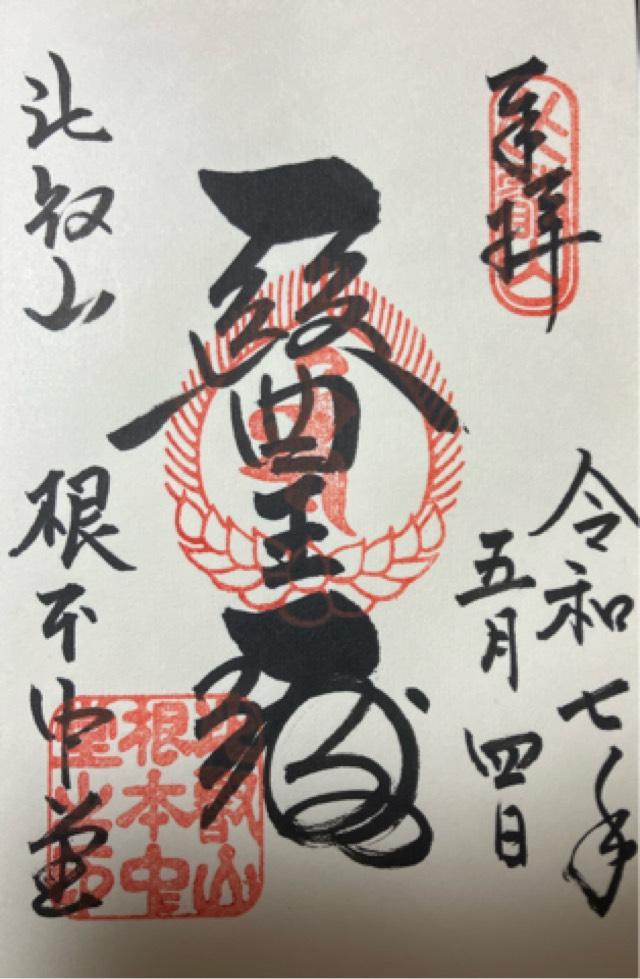 奉拝
令和七年
五月四日
醫王殿
比叡山 根本中堂
比叡山
根本中
堂之印